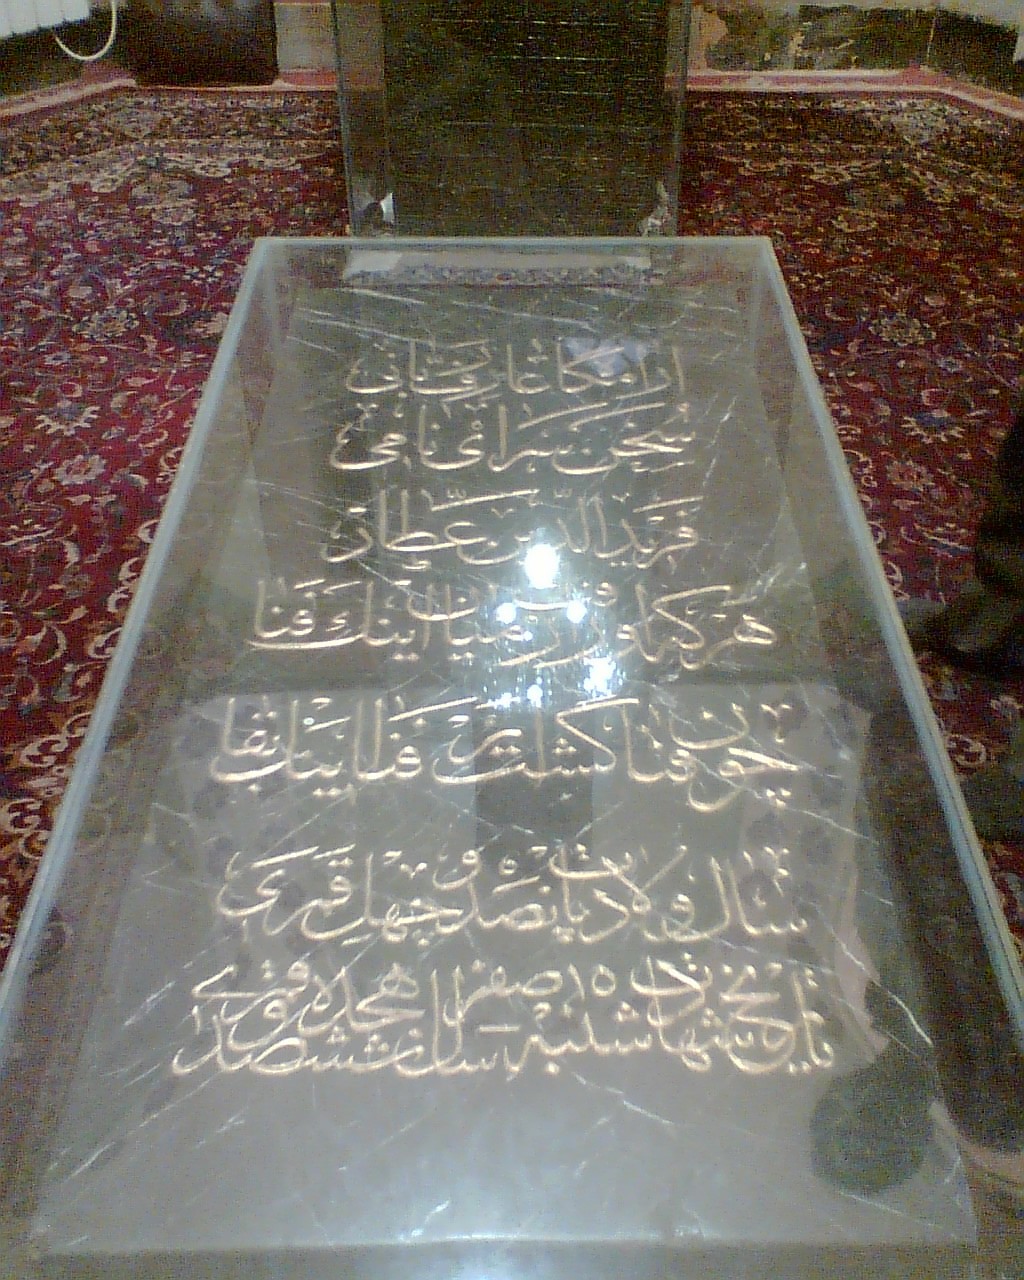 آرامگاه عارف ربانی
سخن سرای نامی
فریدالدین عطار
هر که او رفت از میان اینک فنا
چون فنا گشت از فنا اینک بقا
سال ولادت پانصد و چهل قمری
تاریخ شهادت روز شنبه ۱۵ صفر سال ششصد و هجده قمری